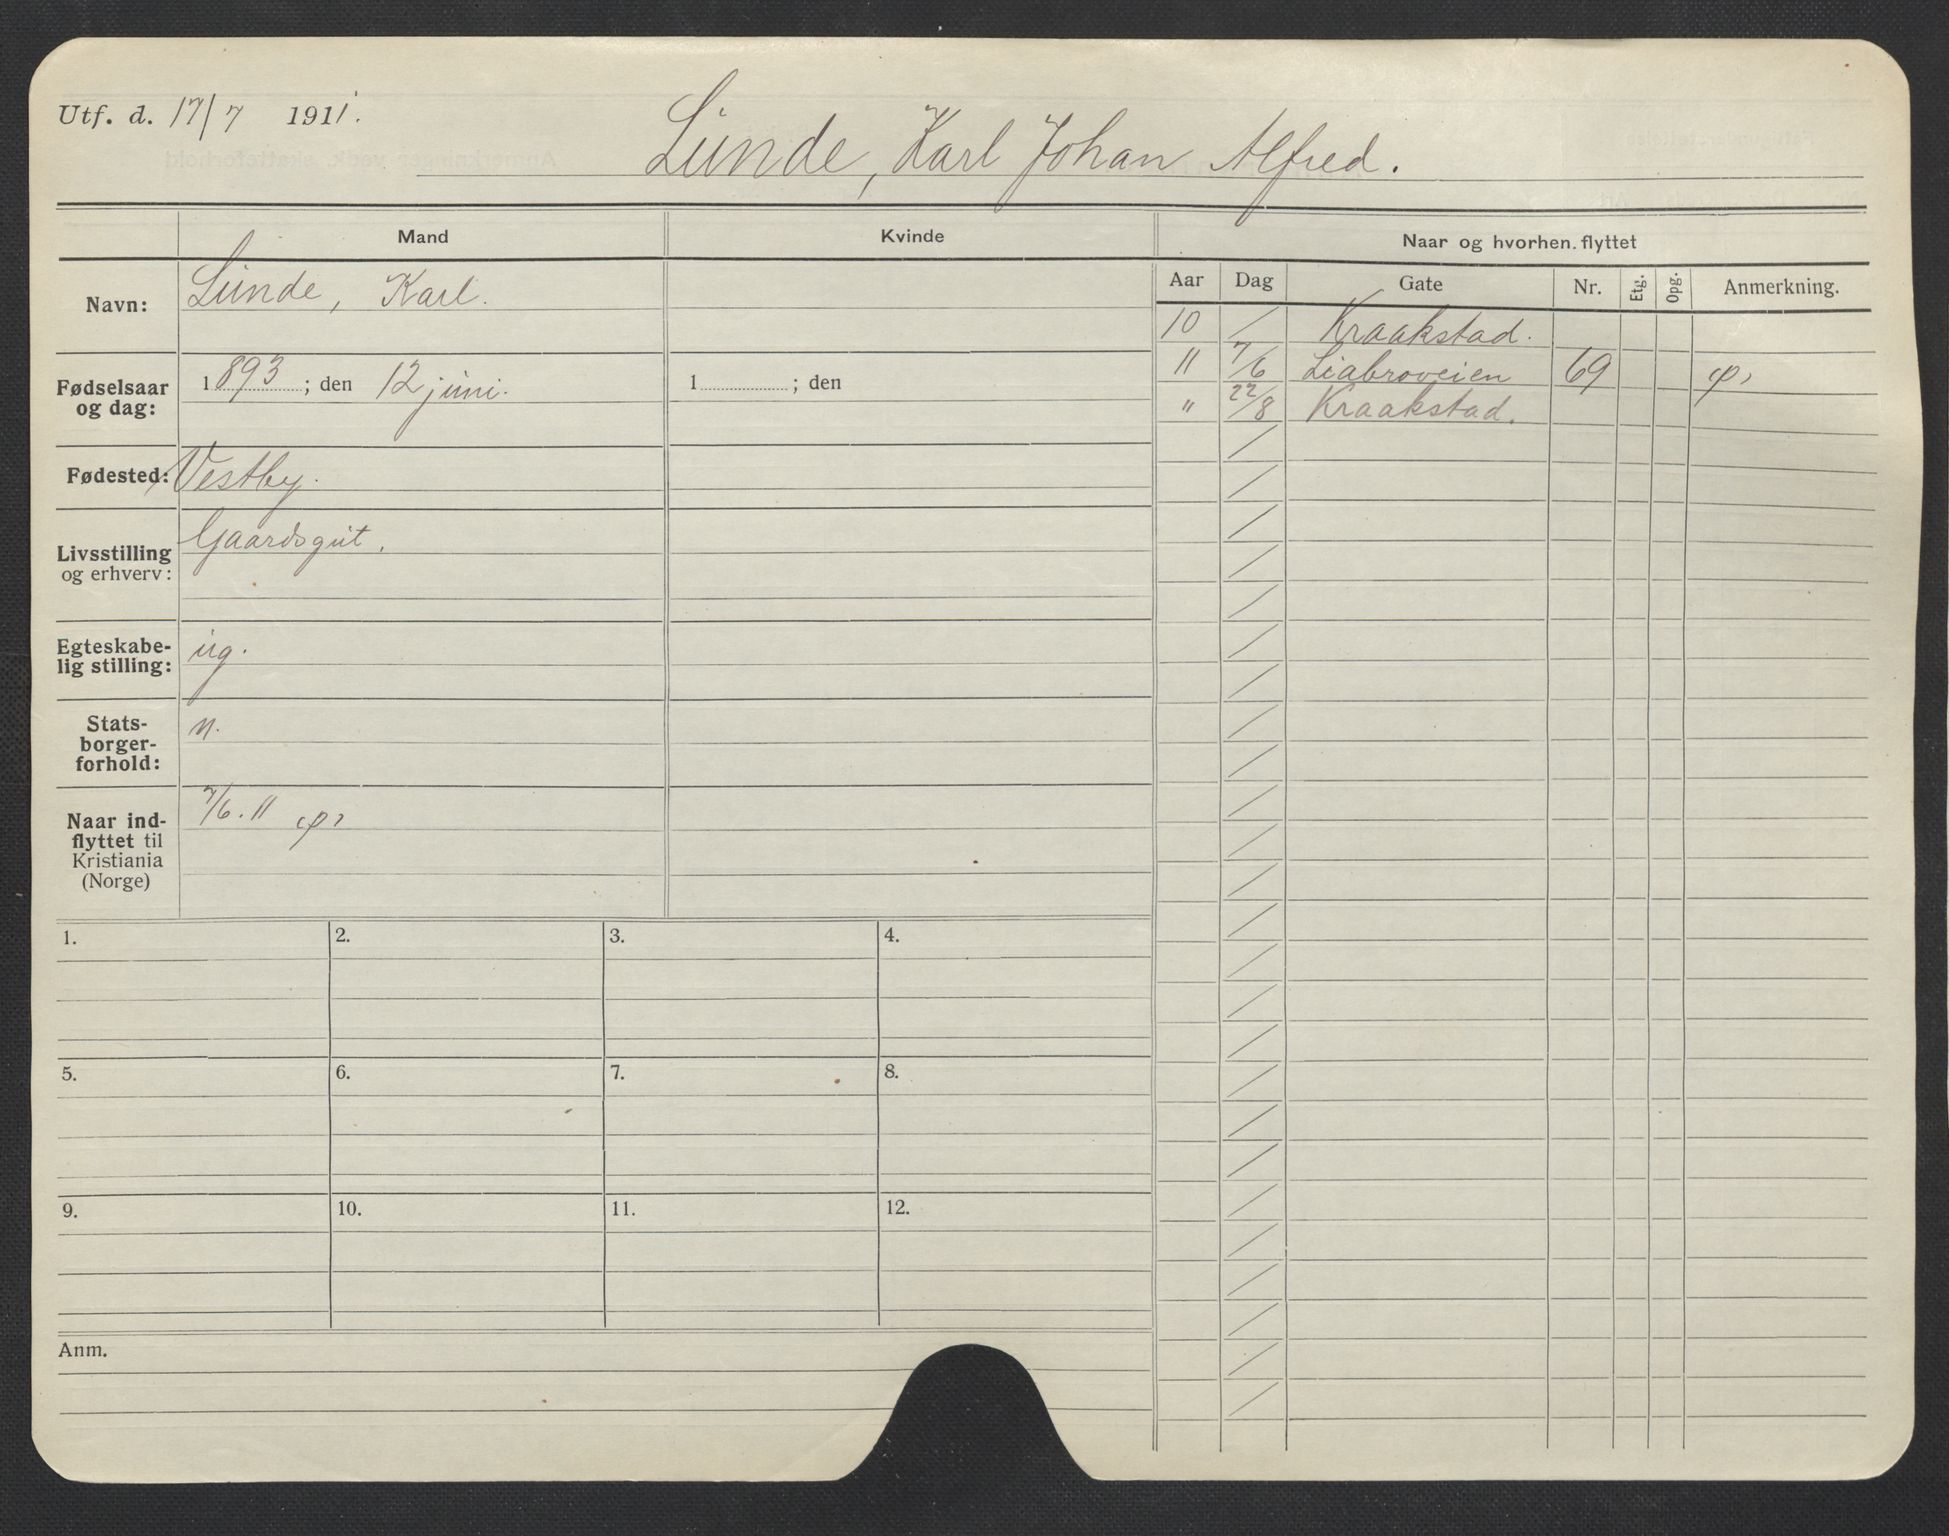 Utf. d. 17/7 1911.
Lunde, Karl Johan Alfred.
Mand
Kvinde
Naar og hvorhen flyttet
Aar Dag Gate Nr. Etg. Opg. Anmerkning.
Navn: Lunde, Karl.
10 / Kraakstad.
11 7/6 Liabroveien 69
" 22/8 Kraakstad.
Fødselsaar
og dag:
1893; den 12 juni.
1 ; den
Fødested: Vestby.
Livsstilling
og erhverv:
Gaardsgut.
Egteskabe-
lig stilling:
ug.
Stats-
borger-
forhold:
n.
Naar ind-
flyttet til
Kristiania
(Norge)
7/6. 11
1. 2. 3. 4.
5. 6. 7. 8.
9. 10. 11. 12.
Anm.